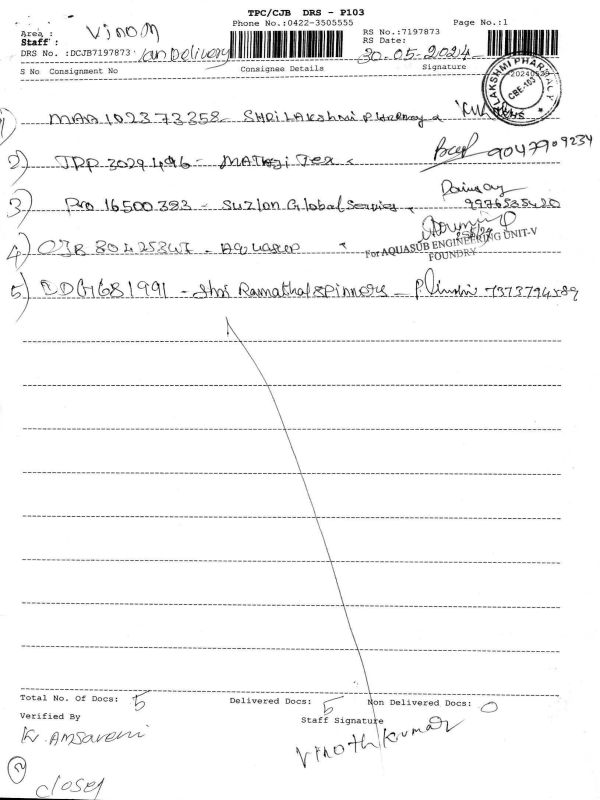 TPC/CJB DRS - P103
Phone No.:0422-3505555 Page No.:1
Area :
Staff : Vinoth
RS No.:7197873
RS Date: 30-05-2024
DRS No. :DCJB7197873 Van Delivery
S No Consignment No Consignee Details Signature
LAKSHMI PHARMACY
CBE-103
1) MAA102373358 - SHRI LAKshmi Pharmacy
2) JRP 3029496 - MATAJI Tex 9047709234
3) Pro 16500383 - Suzlon Global Services 9976535420
4) CJB 80425347 - Aquasub
For AQUASUB ENGINEERING UNIT-V
FOUNDRY
5) CDG1681991 - Shri Ramathal Spinners - 7373794589
Total No. Of Docs: 5 Delivered Docs: 5 Non Delivered Docs: 0
Verified By Staff Signature
K. Amsaveni Vinothkumar
2
closed